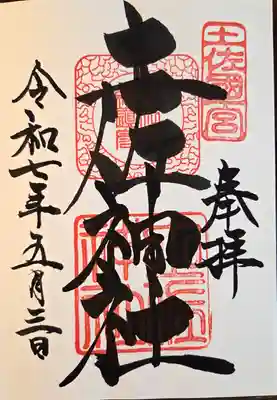 奉拝
土佐國一宮
土佐神社
令和七年五月三日